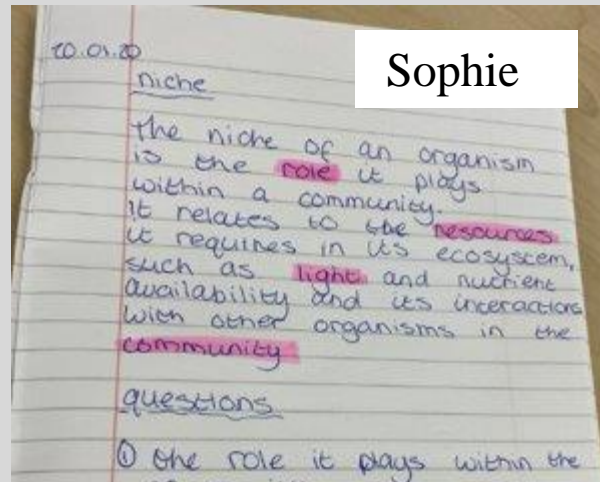 20.01.20
Sophie
niche
the niche of an organism
is the role it plays
within a community.
It relates to the resources
it requires in its ecosystem,
such as light and nutrient
availability and its interactions
with other organisms in the
community
questions
① the role it plays within the